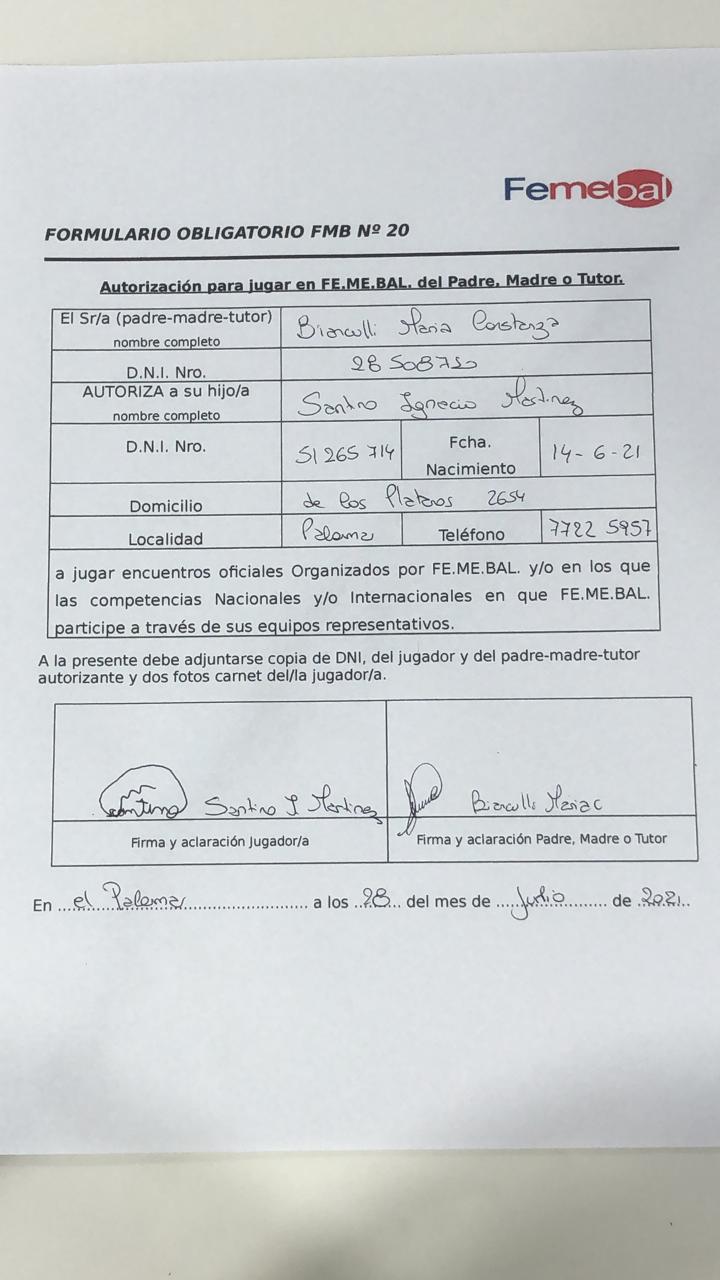 Femebal
FORMULARIO OBLIGATORIO FMB Nº 20
Autorización para jugar en FE.ME.BAL. del Padre, Madre o Tutor.
El Sr/a (padre-madre-tutor)
nombre completo
Bianculli Maria Constanza
D.N.I. Nro.
28 508720
AUTORIZA a su hijo/a
nombre completo
Santino Ignacio Martinez
D.N.I. Nro.
51 265 714
Fcha.
Nacimiento
14- 6 - 21
Domicilio
de los Plateros 2654
Localidad
Palomar
Teléfono
7722 5957
a jugar encuentros oficiales Organizados por FE.ME.BAL. y/o en los que
las competencias Nacionales y/o Internacionales en que FE.ME.BAL.
participe a través de sus equipos representativos.
A la presente debe adjuntarse copia de DNI, del jugador y del padre-madre-tutor
autorizante y dos fotos carnet del/la jugador/a.
Santino I Martinez
Bianculli Maria C
Firma y aclaración Jugador/a
Firma y aclaración Padre, Madre o Tutor
En ...el Palomar........................ a los ..28... del mes de .....Julio.......... de .2021..